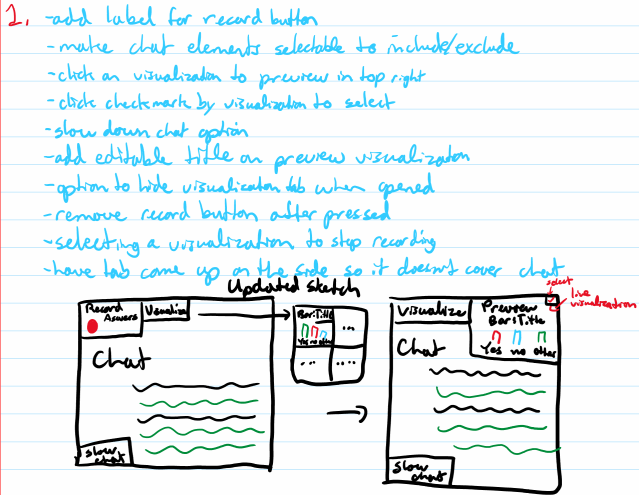 1. -add label for record button
-make chat elements selectable to include/exclude
-click on visualization to preview in top right
-click checkmark by visualization to select
-slow down chat option
-add editable title on preview visualization
-option to hide visualization tab when opened
-remove record button after pressed
-selecting a visualization to stop recording
-have tab come up on the side so it doesn't cover chat
Updated sketch
select
live
visualization
Record
Answers
Visualize
Bar:Title
Yes no other
...
...
....
Chat
slow
chat
Visualize
Preview
Bar:Title
Yes no other
Chat
slow
chat